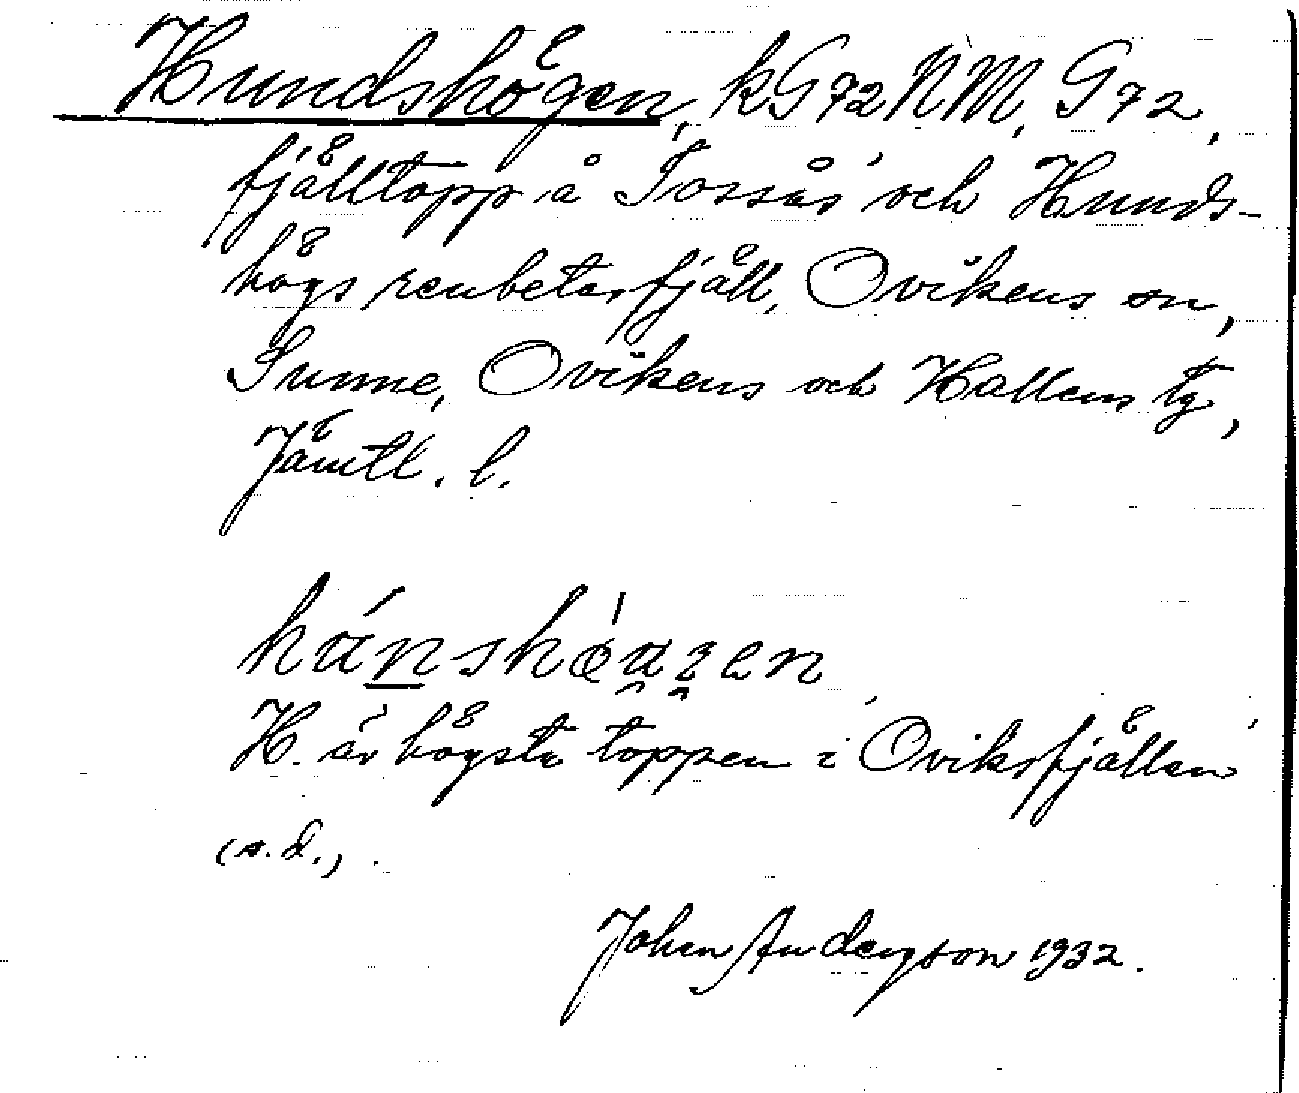 Hundshögen, kG72NM, G72,
fjälltopp å Tossås' och Hunds-
högs renbetesfjäll, Ovikens sn,
Sunne, Ovikens och Hallens tg,
Jämtl. l.
H. är högsta toppen i Oviksfjällen
(s.d.).
John Anderson 1932.